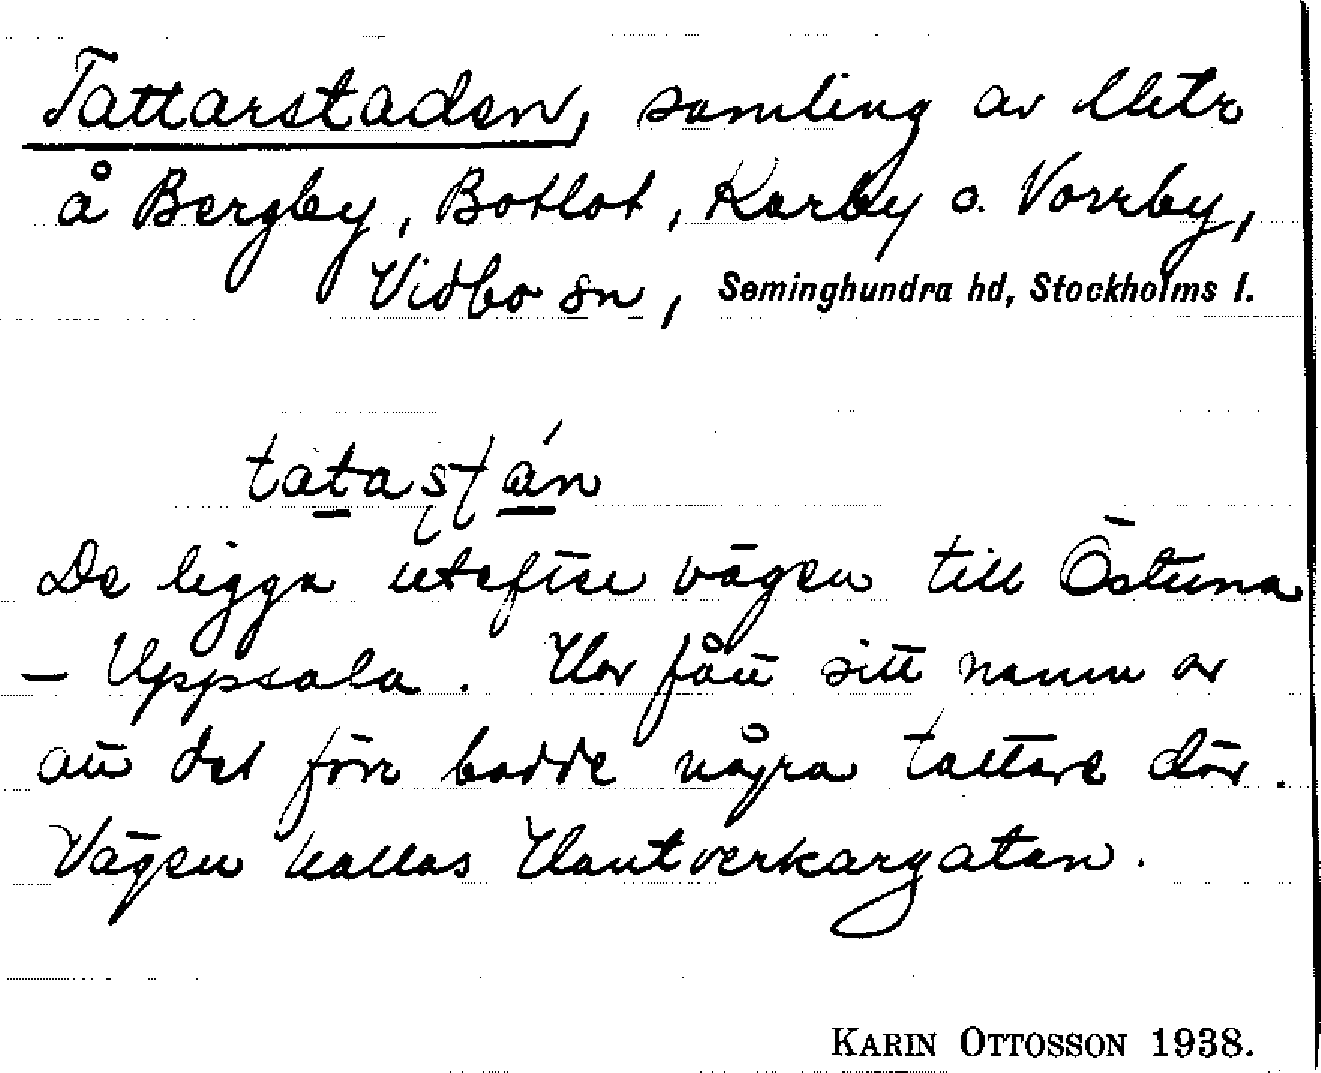 Tattarstaden, samling av lht:r
å Bergby, Botlot, Karby o. Vorrby,
Vidbo sn, Seminghundra hd, Stockholms l.
De ligga utefter vägen till Östuna
– Uppsala. Har fått sitt namn av
att det förr bodde några tattare där.
Vägen kallas Hantverkargatan.
KARIN OTTOSSON 1938.